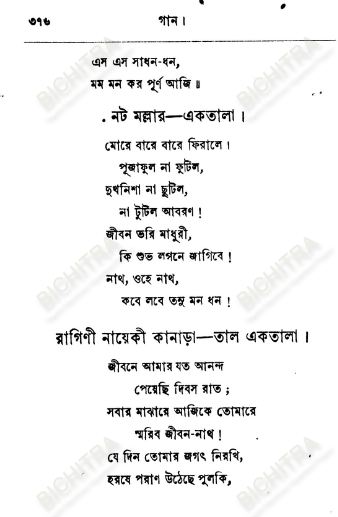 ৩৭৬ গান।
এস এস সাধন-ধন,
মম মন কর পূর্ণ আজি॥
নট মল্লার—একতালা।
মোরে বারে বারে ফিরালে।
পূজাফুল না ফুটিল,
দুখনিশা না ছুটিল,
না টুটিল আবরণ!
জীবন ভরি মাধুরী,
কি শুভ লগনে জাগিবে!
নাথ, ওহে নাথ,
কবে লবে তনু মন ধন!
রাগিণী নায়েকী কানাড়া—তাল একতালা।
জীবনে আমার যত আনন্দ
পেয়েছি দিবস রাত;
সবার মাঝারে আজিকে তোমারে
স্মরিব জীবন-নাথ!
যে দিন তোমার জগৎ নিরখি,
হরষে পরাণ উঠেছে পুলকি,
BICHITRA
BICHITRA
BICHITRA
BICHITRA
BICHITRA
BICHITRA
BICHITRA
BICHITRA